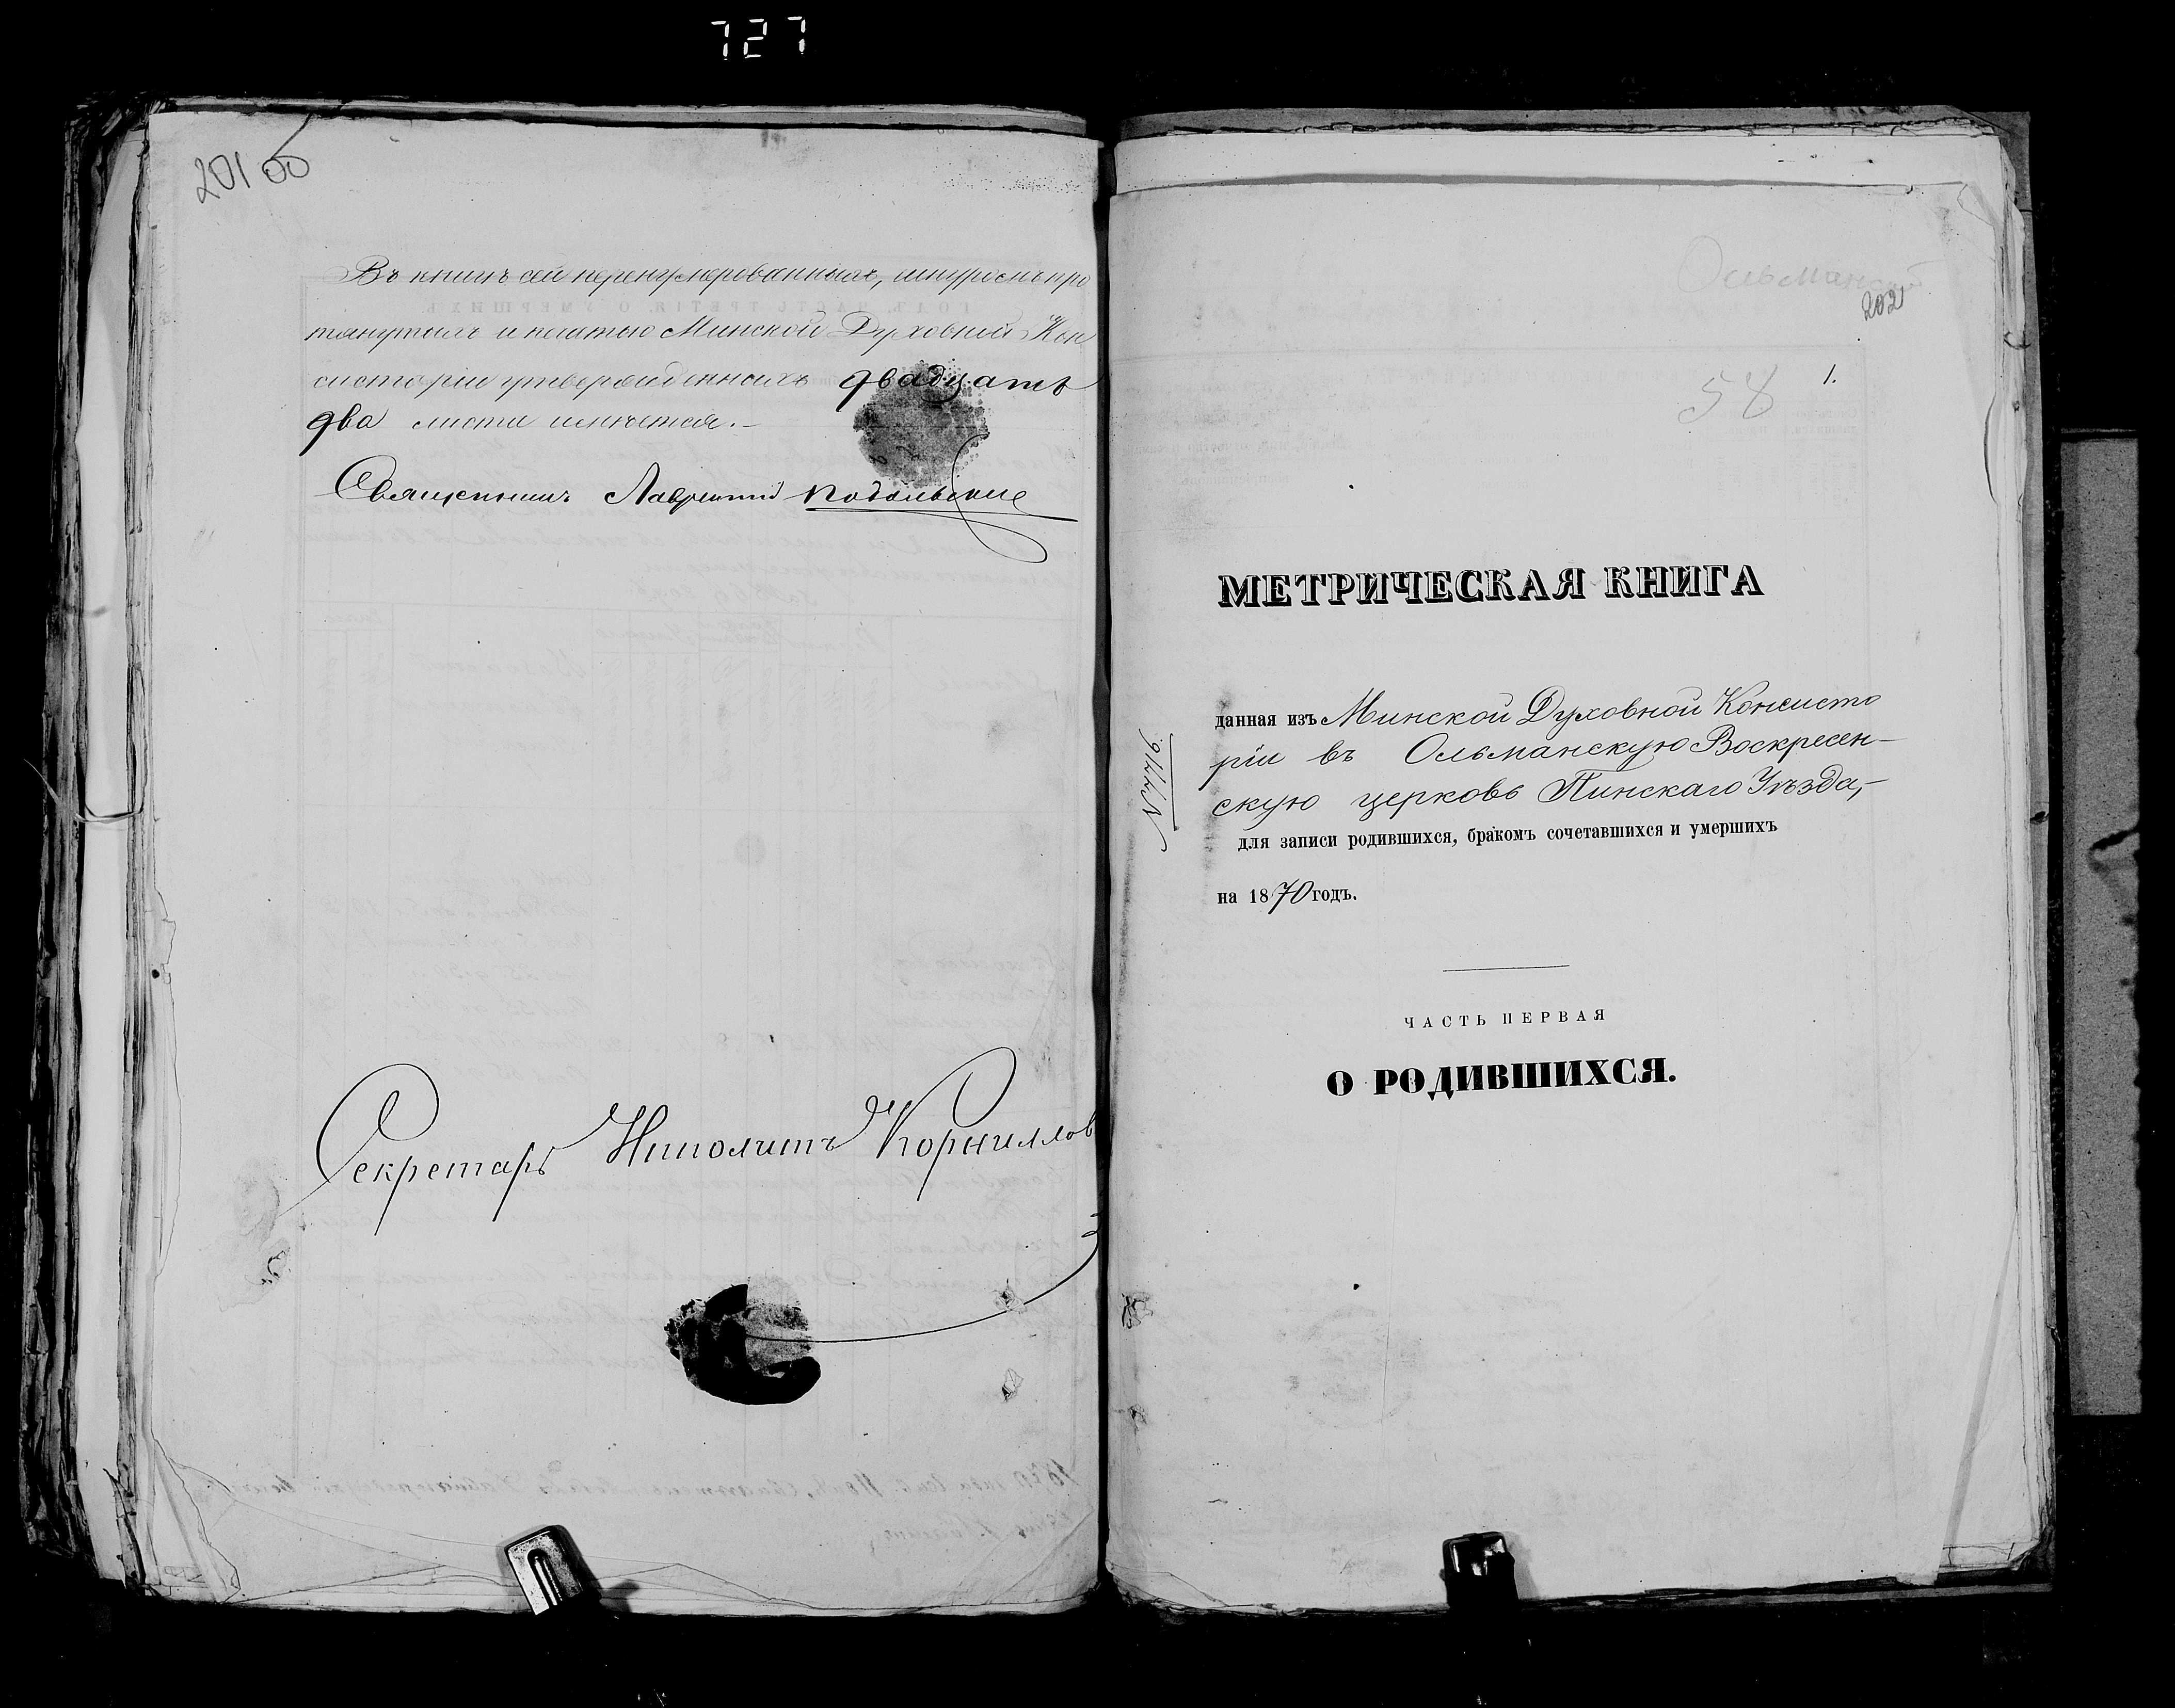 727
201 об
Въ книгѣ сей перенумерованныхъ, шнуромъ про
тянутыхъ и печатью Минской Духовной Кон
систоріи утвержденныхъ двадцать
два листа имѣется.-
Священникъ Лаврентій Подольскій
Секретарь Ипполитъ Корниллов
Ольманской
202
58
1.
МЕТРИЧЕСКАЯ КНИГА
данная изъ Минской Духовной Консисто
ріи въ Ольманскую Воскресен-
скую церковь Пинскаго Уѣзда,-
для записи родившихся, бракомъ сочетавшихся и умершихъ
на 1870 годъ.
ЧАСТЬ ПЕРВАЯ
О РОДИВШИХСЯ.